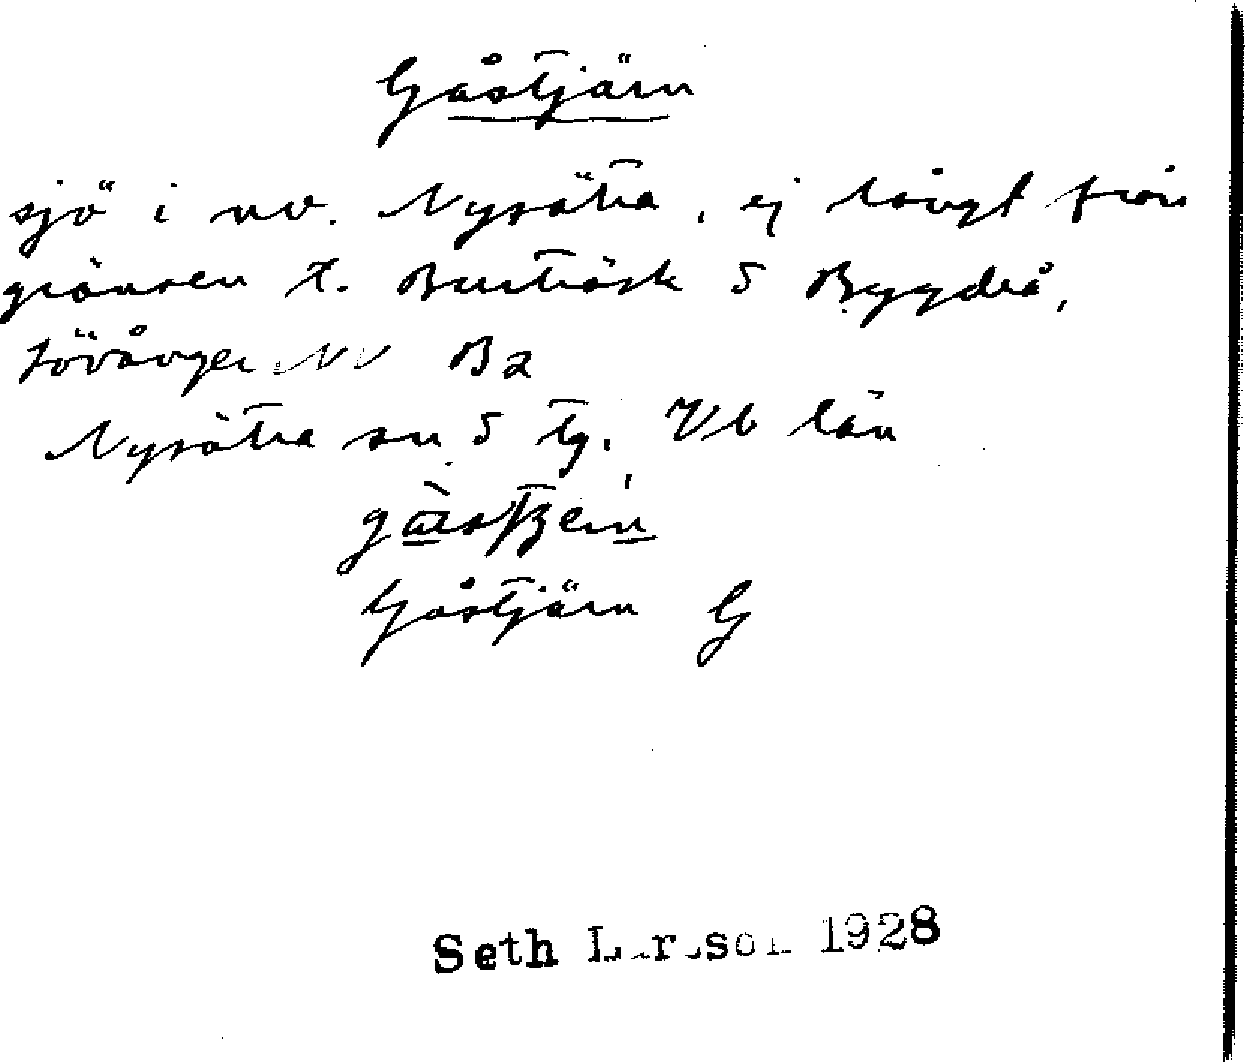 Gåstjärn
sjö i nv. Nysätra, ej långt från
gränsen t. Burträsk S Bygdeå,
Lövånger NV B2
Nysätra sn S tg. Vb län
Gåstjärn G
Seth Larsson 1928